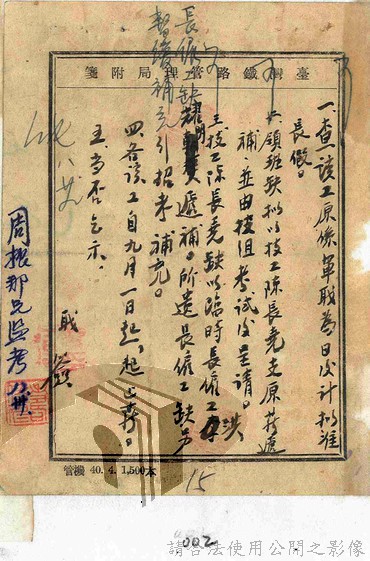 臺灣鐵路管理局附箋
一、查該工原係軍職為日後計擬准
長假。
二、領班缺擬以技工陳長堯支原薪遞
補、並由該組考試後呈請。
三、技工陳長堯缺以臨時長僱工洪
耀明遞補。所遺長僱工缺另
行招考補充。
四、各該工自九月一日起起止薪。
五、當否乞示。
職
長僱工缺
暫緩補充
周振那兄監考 八卅
管機 40. 4. 1,500本
15
002
請合法使用公開之影像